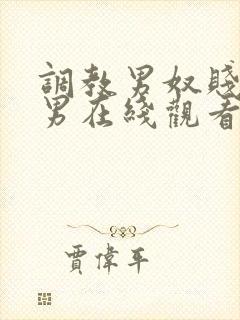 調教男奴賤
男在綫觀看
賈偉平